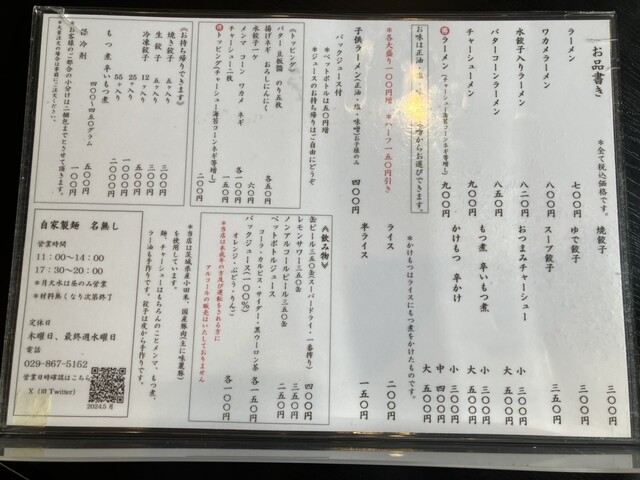 お品書き
＊全て税込価格です。
ラーメン 七〇〇円
ワカメラーメン 八〇〇円
水餃子入りラーメン 八二〇円
バターコーンラーメン 八五〇円
チャーシューメン 九〇〇円
得ラーメン(チャーシュー海苔コーンネギ等増し) 九〇〇円
からお選びできます。
＊各大盛り一〇〇円増 ＊ハーフ一五〇円引き
子供ラーメン(正油・塩・味噌)お子様のみ 四〇〇円
パックジュース付
＊ペットボトルは五〇円増
＊ジュースのお持ち帰りはご自由にどうぞ
焼餃子 三〇〇円
ゆで餃子 三〇〇円
スープ餃子 三五〇円
おつまみチャーシュー 小 三〇〇円
大 五〇〇円
もつ煮 辛いもつ煮 小 三〇〇円
大 五〇〇円
かけもつ 辛かけ 小 三〇〇円
中 四〇〇円
大 五〇〇円
＊かけもつはライスにもつ煮をかけたものです。
ライス 二〇〇円
半ライス 一五〇円
《トッピング》
バター 豆板醤 のり五枚
揚げネギ おろしにんにく 各五〇円
水餃子一ケ 六〇円
メンマ コーン ワカメ ネギ 各一〇〇円
チャーシュー二枚 一五〇円
得トッピング(チャーシュー海苔コーンネギ等増し) 二〇〇円
《飲み物》
缶ビール三五〇缶(スーパードライ・一番搾り) 四〇〇円
レモンサワー三五〇缶 三五〇円
ノンアルコールビール三五〇缶 二五〇円
ペットボトルジュース
コーラ・カルピス・サイダー・黒ウーロン茶 各一五〇円
パックジュース(一〇〇%)
オレンジ・ぶどう・りんご 各一〇〇円
＊当店は未成年の方及び運転をされる方に
アルコールの販売はいたしておりません
《お持ち帰りできます》
焼き餃子 五ヶ入り 三〇〇円
生餃子 五ヶ入り 三〇〇円
冷凍餃子 12ヶ入り 五〇〇円
25ヶ入り 一〇〇〇円
55ヶ入り 二〇〇〇円
もつ煮 辛いもつ煮
四〇〇〜四五〇グラム 五〇〇円
保冷剤 一〇〇円
＊お客様のご都合の小分けは二梱包までとさせて頂きます。
＊大量注文の場合は事前にご注文ください。
＊当店は茨城県産小田米、国産豚肉(主に味麗豚)
を使用しています。
麺、チャーシューはもちろんのことメンマ、もつ煮、
ラー油も手作りです。餃子は皮から手作りです。
自家製麺 名無し
営業時間
11：00〜14：00
17：30〜20：00
＊月火水は昼のみ営業
＊材料無くなり次第終了
定休日
木曜日、最終週水曜日
電話
029-867-5162
営業日時確認はこちら
X (旧 Twitter)
2024.5 月